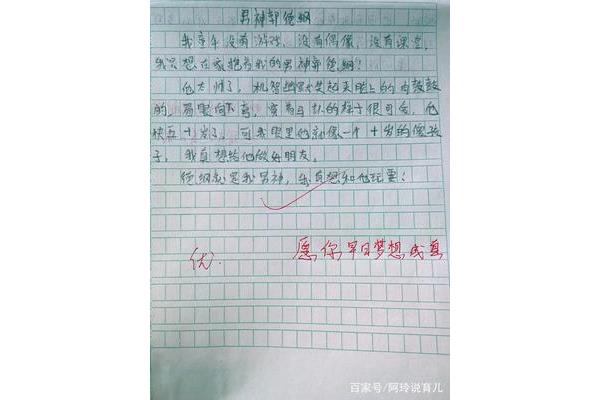 男神郭德纲
我童年没有游戏，没有偶像，没有课堂，
我只想在家抱着我的男神郭德纲！
他太帅了，机智幽默笑起来脸上的肉鼓鼓
的，眉毛向下弯，的样子很可爱，他
快五十岁了，可我眼里他就像一个十岁的傻孩
子，我真想给他做好朋友。
德纲就是我男神，我真想和他玩耍！
优.
愿你早日梦想成真
百家号/阿玲说育儿